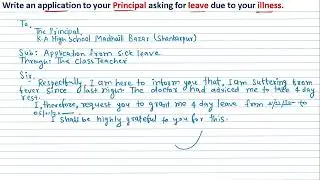 Write an application to your Principal asking for leave due to your illness.
To,
The Principal,
K.A High School Madhaili Bazar (Shankarpur)
Sub: Application from sick leave
Through: The Class Teacher
Sir,
Respectfully, I am here to inform you that, I am suffering from
fever since last night. The doctor had adviced me to take 4 day
rest.
I, therefore, request you to grant me 4 day leave from
to
I shall be highly grateful to you for this.